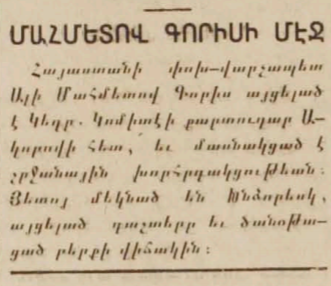 ՄԱՀՄԵՏՈՎ ԳՈՐԻՍԻ ՄԷՋ
Հայաստանի փոխ-վարչապետ
Ալի Մահմետով Գորիս այցելած
է Կեդր. Կոմիտէի քարտուղար Ա-
կորովի հետ, եւ մասնակցած է
շրջանային խորհրդակցութեան։
Յետոյ մեկնած են Խնձորեսկ,
այցելած դաշտերը եւ ծանօթա-
ցած բերքի վիճակին։